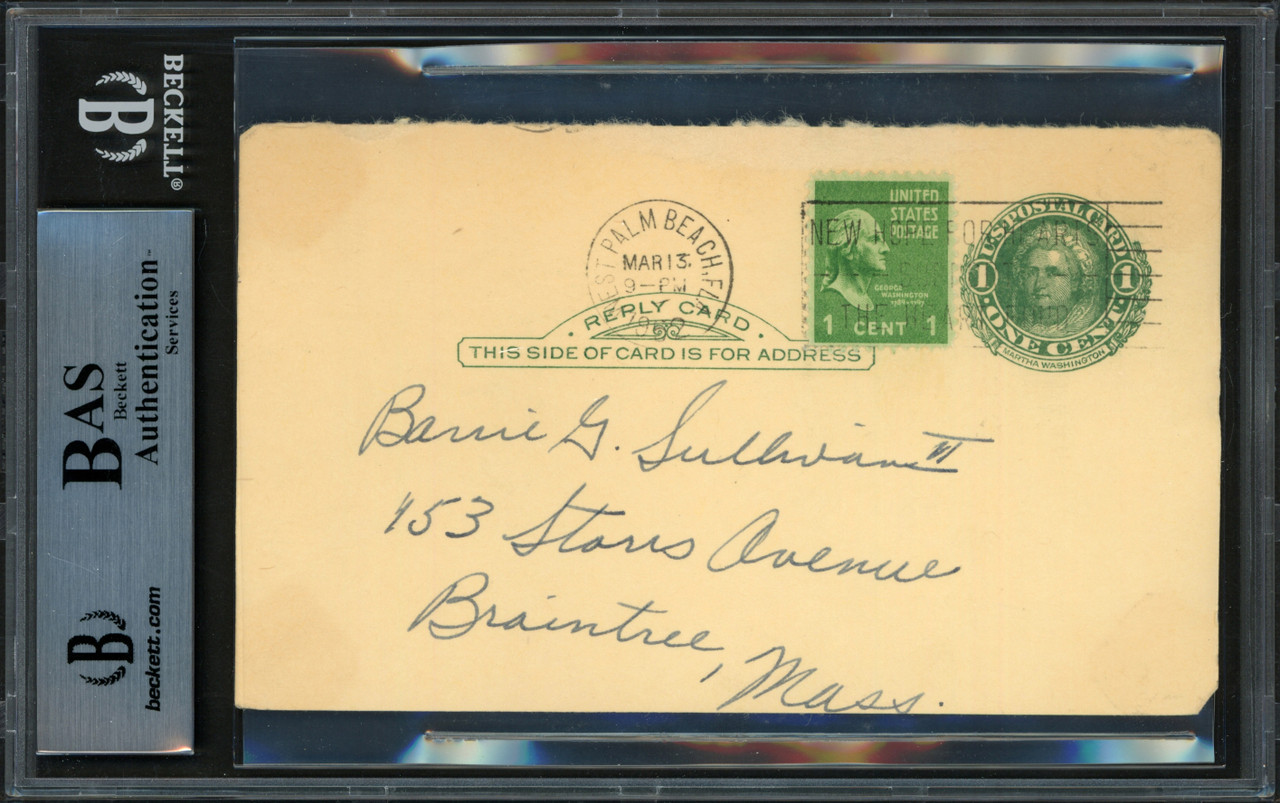 BECKETT®
B
BAS
Beckett
Authentication
Services
B
beckett.com
WEST PALM BEACH, FLA
MAR 13
9-PM
UNITED
STATES
POSTAGE
GEORGE
WASHINGTON
1789-1797
1 CENT 1
NEW FOR
THE
U.S. POSTAL CARD
1 1
ONE CENT
MARTHA WASHINGTON
REPLY CARD
THIS SIDE OF CARD IS FOR ADDRESS
Barrie G. Sullivan II
153 Storrs Avenue
Braintree, Mass.